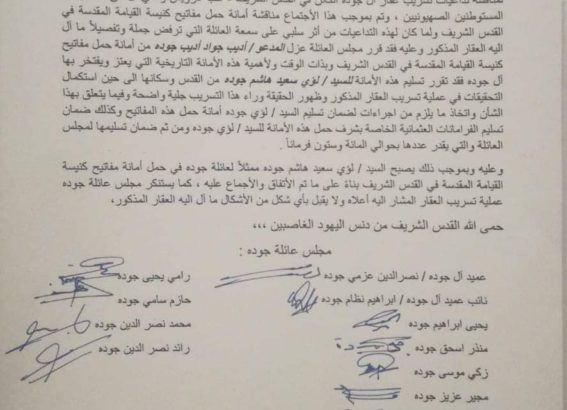 المستوطنين الصهيونيين ، وتم بموجب هذا الأجتماع مناقشة أمانة حمل مفاتيح كنيسة القيامة المقدسة في
القدس الشريف ولما كان لهذه التداعيات من أثر سلبي على سمعة العائلة التي ترفض جملة وتفصيلاً ما آل
اليه العقار المذكور وعليه فقد قرر مجلس العائلة عزل المدعو / أديب جواد أديب جوده من أمانة حمل مفاتيح
كنيسة القيامة المقدسة في القدس الشريف وبذات الوقت ولأهمية هذه الأمانة التاريخية التي يعتز ويفتخر بها
آل جوده فقد تقرر تسليم هذه الأمانة للسيد / لؤي سعيد هاشم جوده من القدس وسكانها الى حين استكمال
التحقيقات في عملية تسريب العقار المذكور وظهور الحقيقة وراء هذا التسريب جلية واضحة وفيما يتعلق بهذا
الشأن واتخاذ ما يلزم من اجراءات لضمان تسليم السيد / لؤي جودة أمانة حمل هذه المفاتيح وكذلك ضمان
تسليم الفرامانات العثمانية الخاصة بشرف حمل هذه الأمانة للسيد / لؤي جوده ومن ثم ضمان تسليمها لمجلس
العائلة والتي يقدر عددها بحوالي المائة وستون فرماناً .
وعليه وبموجب ذلك يصبح السيد / لؤي سعيد هاشم جوده ممثلاً لعائلة جوده في حمل أمانة مفاتيح كنيسة
القيامة المقدسة في القدس الشريف بناة على ما تم الأتفاق والأجماع عليه ، كما يستنكر مجلس عائلة جوده
عملية تسريب العقار المشار اليه أعلاه ولا يقبل بأي شكل من الأشكال ما آل اليه العقار المذكور،
حمى الله القدس الشريف من دنس اليهود الغاصبين ،،،
مجلس عائلة جوده :
عميد آل جوده / نصرالدين عزمي جوده
نائب عميد آل جوده / ابراهيم نظام جوده
يحيى ابراهيم جوده
منذر اسحق جوده
زكي موسى جوده
مجير عزيز جوده
رامي يحيى جوده
حازم سامي جوده
محمد نصر الدين جوده
رائد نصر الدين جوده